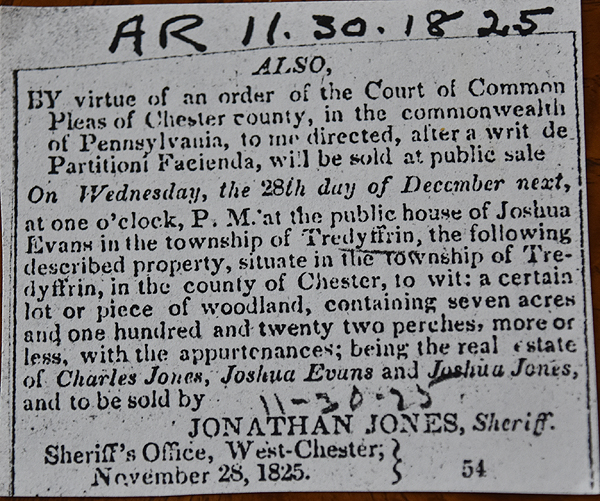 AR 11.30.1825
ALSO,
BY virtue of an order of the Court of Common
Pleas of Chester county, in the commonwealth
of Pennsylvania, to me directed, after a writ de
Partitioni Facienda, will be sold at public sale
On Wednesday, the 28th day of December next,
at one o'clock, P. M. at the public house of Joshua
Evans in the township of Tredyffrin, the following
described property, situate in the township of Tre-
dyffrin, in the county of Chester, to wit: a certain
lot or piece of woodland, containing seven acres
and one hundred and twenty two perches, more or
less, with the appurtenances; being the real estate
of Charles Jones, Joshua Evans and Joshua Jones,
and to be sold by 11-30-25
JONATHAN JONES, Sheriff.
Sheriff's Office, West-Chester;
November 28, 1825. 54